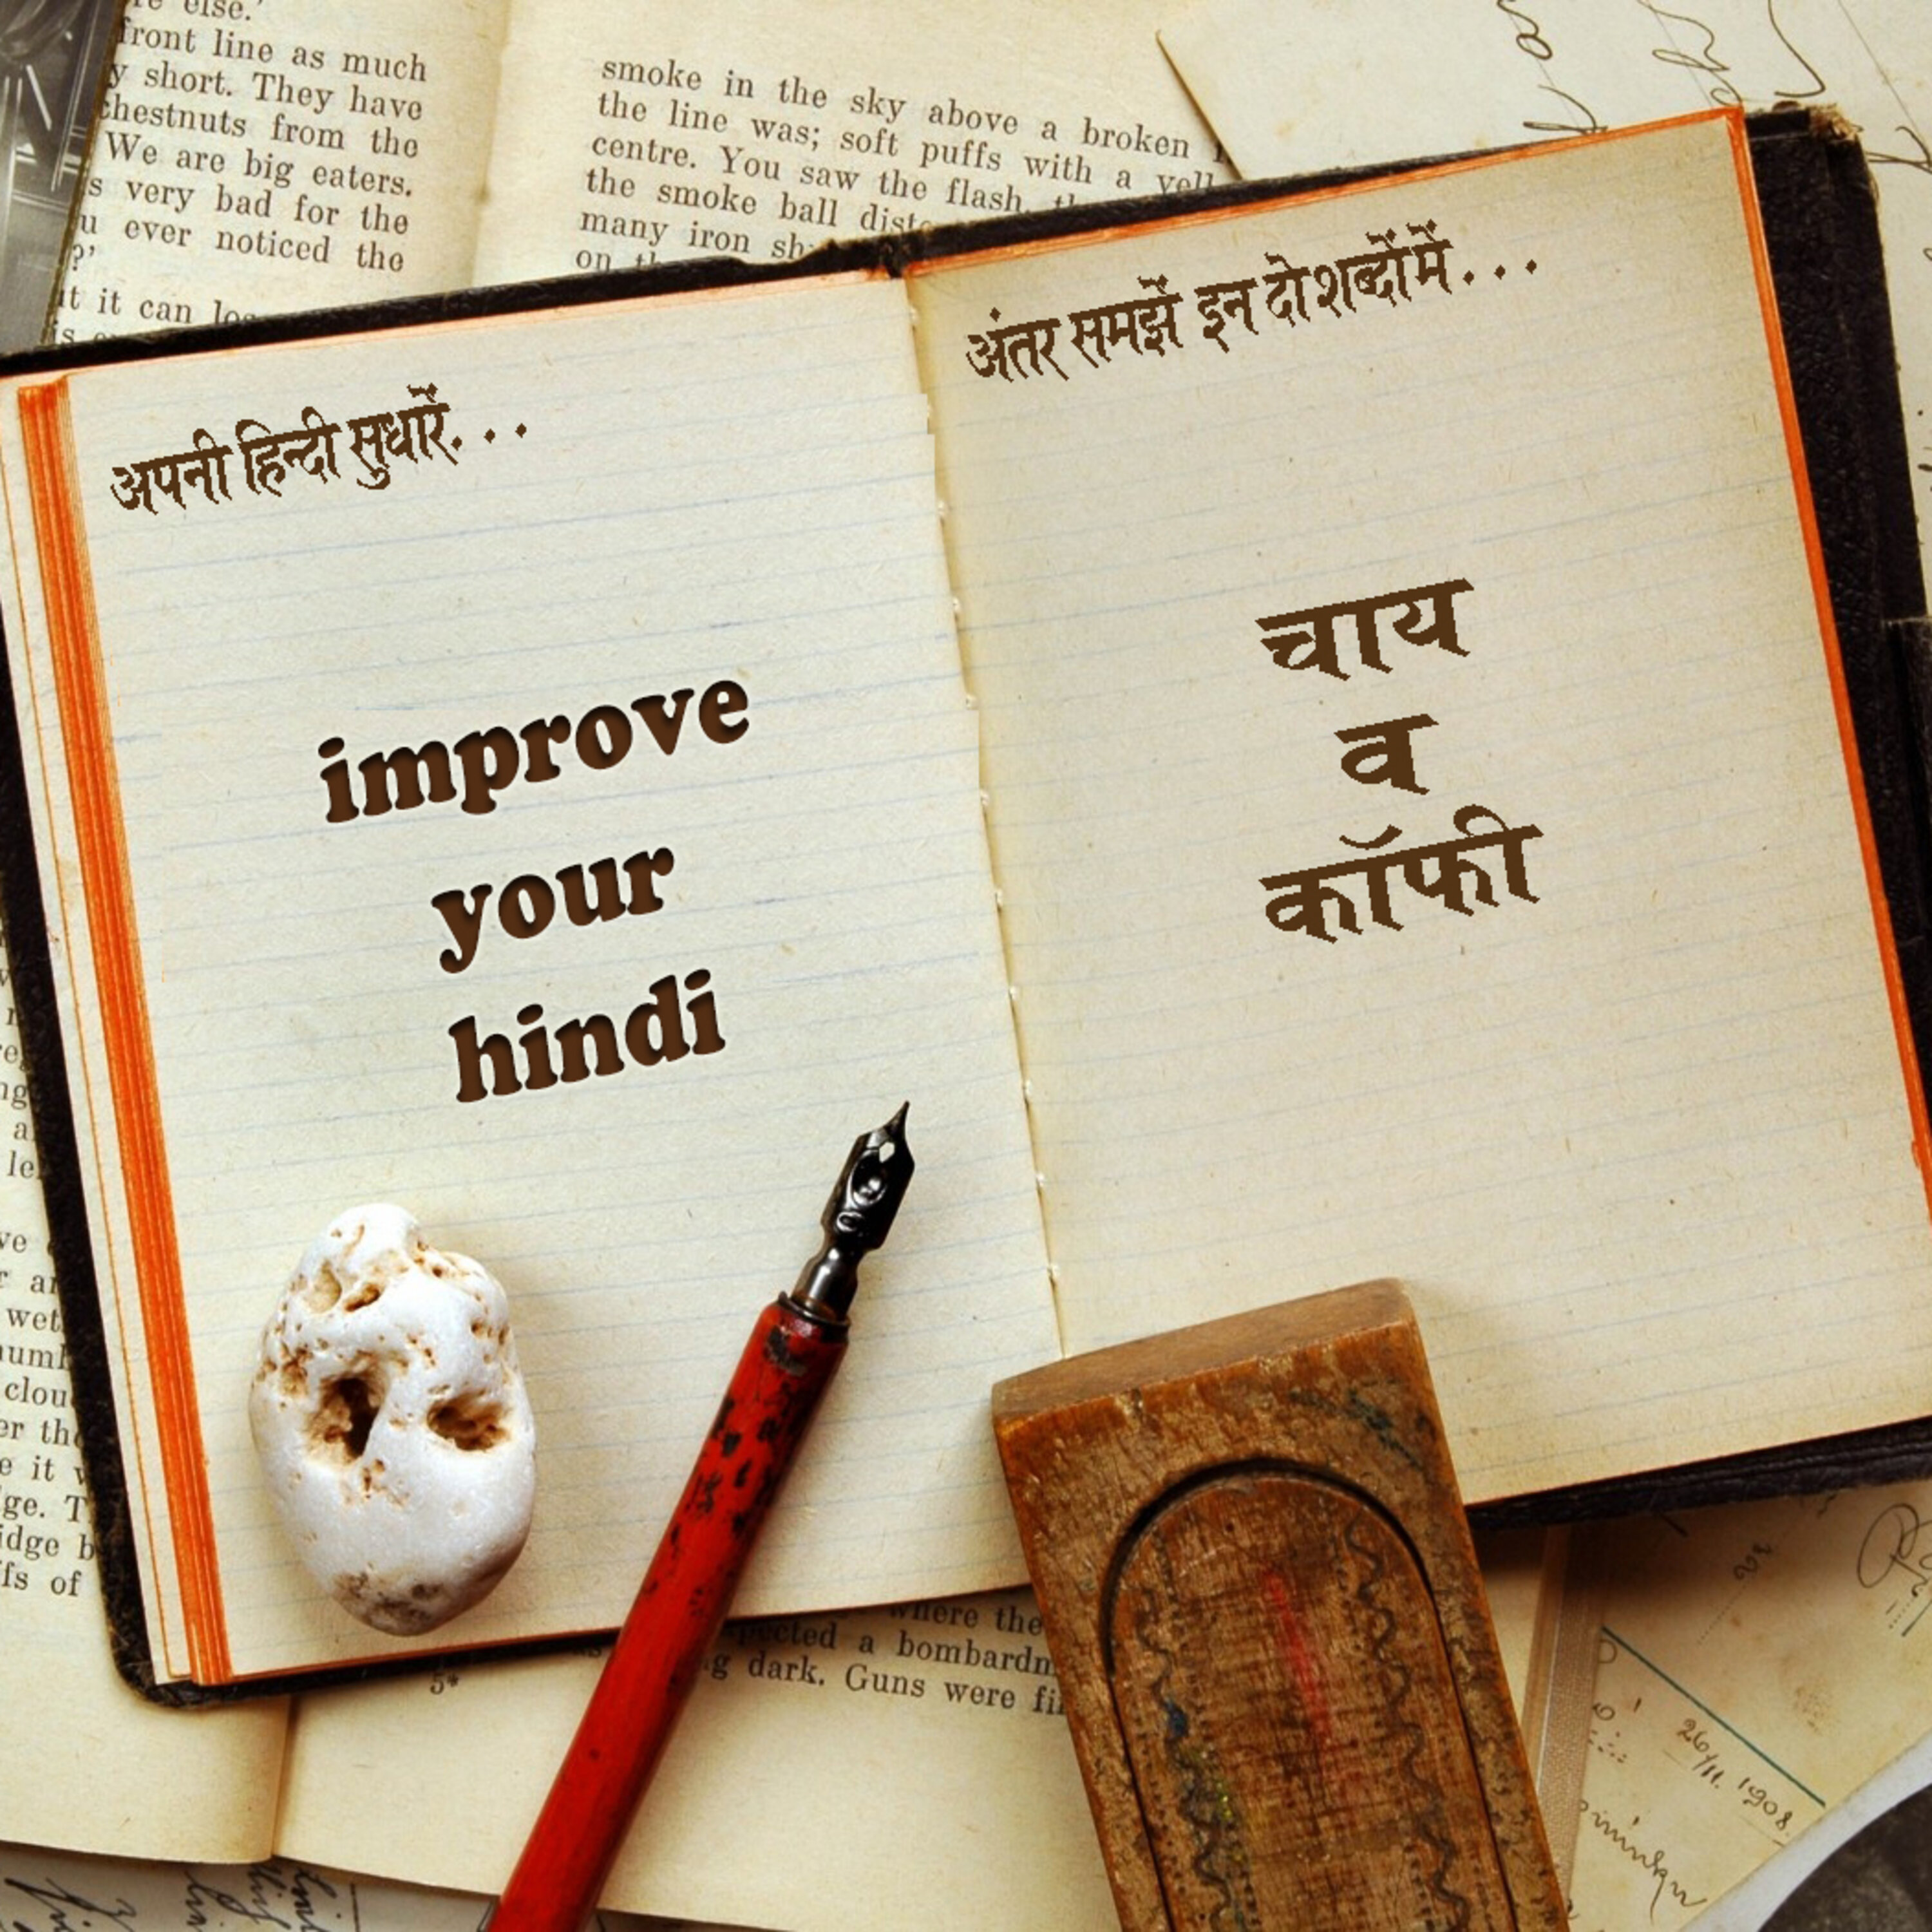 re else.'
front line as much
y short. They have
chestnuts from the
We are big eaters.
s very bad for the
u ever noticed the
?'
it it can
smoke in the sky above a broken
the line was; soft puffs with a
centre. You saw the flash,
the smoke ball
many iron
on
अपनी हिन्दी सुधारें...
improve
your
hindi
अंतर समझें इन दो शब्दों में...
चाय
व
कॉफी
where the
a
dark. Guns were
5*
wet
er the
e it
ge. T
idge b
fs of
26/11. 1908.